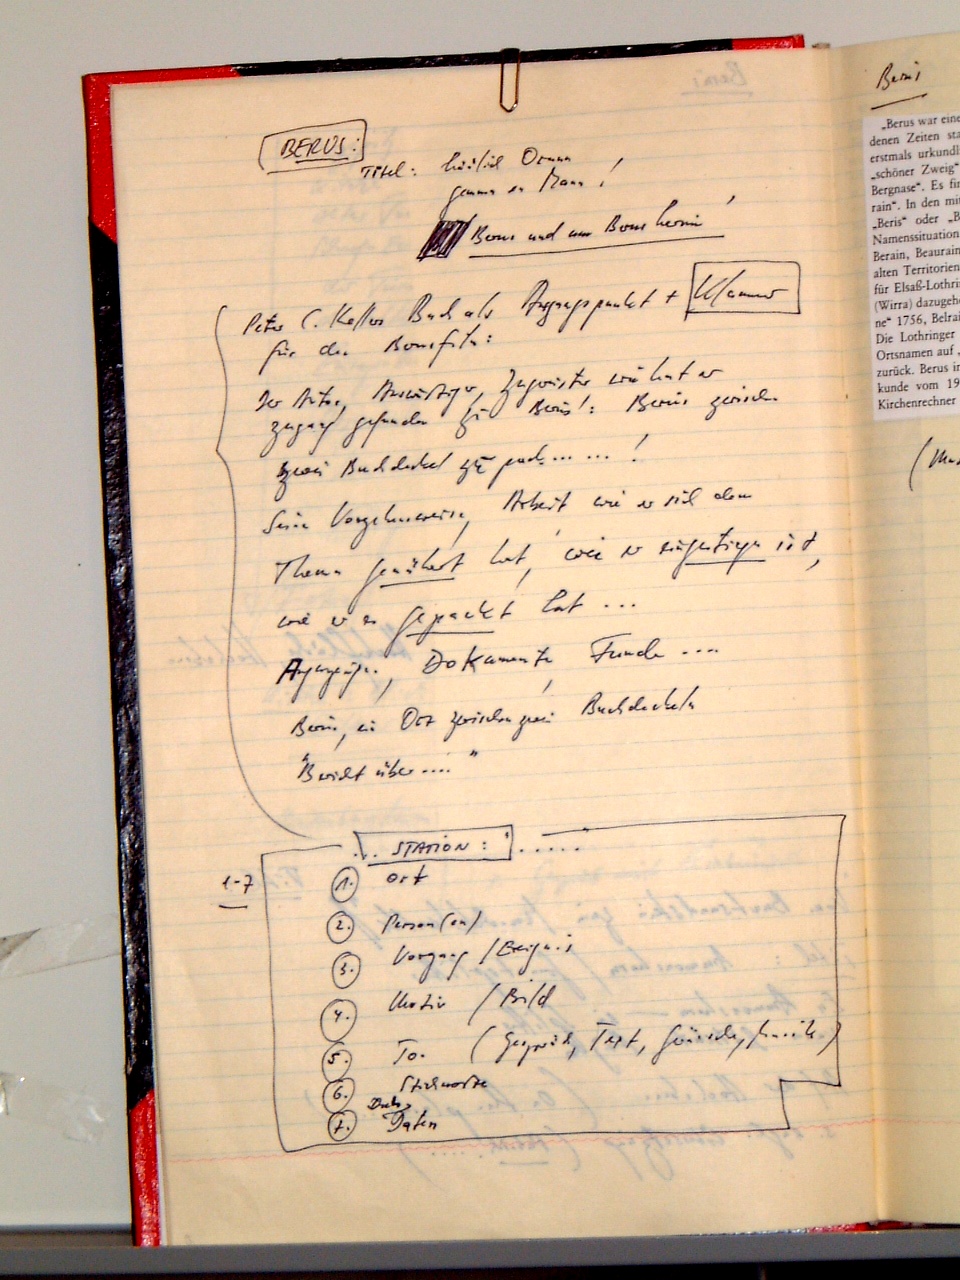 BERUS:
Titel:
genau en Mann!
Berus und um Berus herum!
Peter C. Keller Buch als Ausgangspunkt + Klammer
für den Berusfilm:
Der Autor, Auswärtiger, Zugereister wie hat er
zugang gefunden zu Berus!: Berus zwischen
zwei Buchdeckel zu pack... ... !
Seine Vorgehensweise, Arbeit wie er sich dem
Thema genähert hat, wie er eingestiegen ist,
wie er es gepackt hat ...
Dokumente, Funde ....
Berus, ein Ort zwischen zwei Buchdeckeln
"Bericht über .... "
... STATION: .....
1-7
1. Ort
2. Person(en)
3. Vorgang / Ereignis
4. Motiv / Bild
5. Ton (Gespräch, Text, Geräusche, Musik)
6. Stichworte
Dreh
7. Daten
Berus
„Berus war eine
denen Zeiten sta
erstmals urkundli
„schöner Zweig"
Bergnase". Es fin
rain". In den mit
„Beris" oder „B
Namenssituation
Berain, Beaurain
alten Territorien
für Elsaß-Lothrin
(Wirra) dazugehö
ne" 1756, Belrai
Die Lothringer
Ortsnamen auf „
zurück. Berus in
kunde vom 19
Kirchenrechner